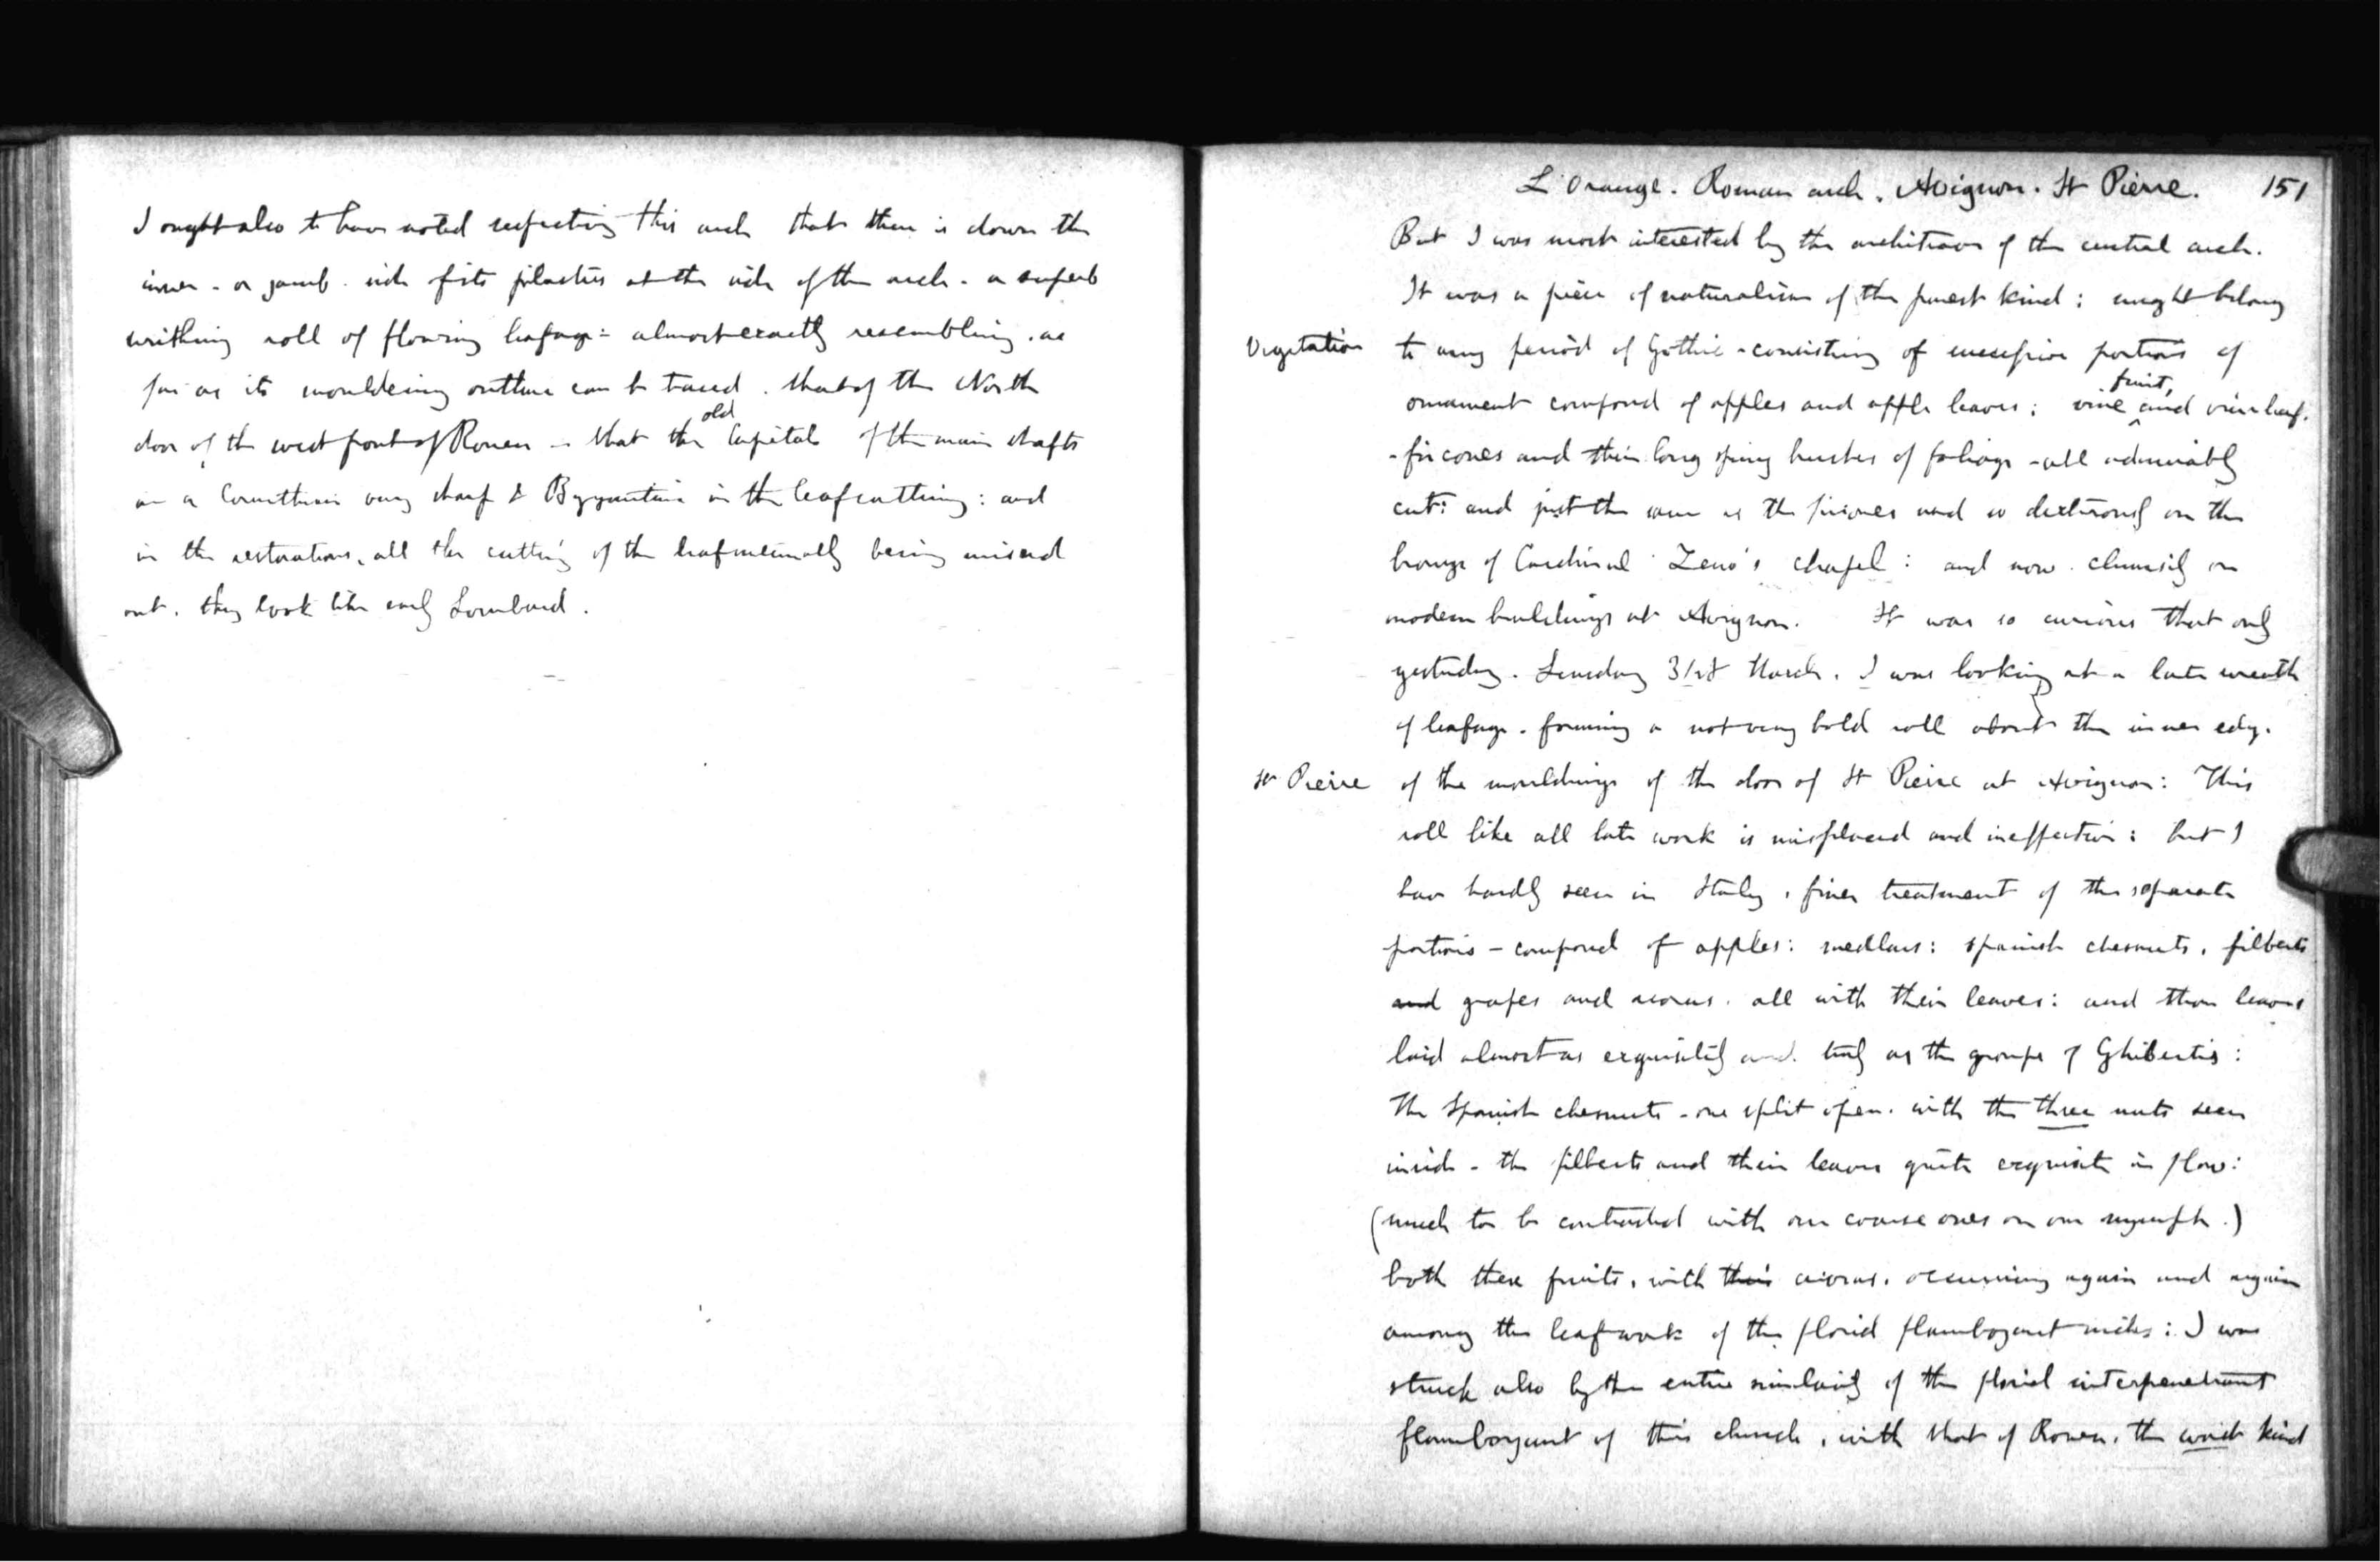 I ought also to have noted respecting this arch that there is down the
inner - or jamb. side of its pilasters at the side of the arch - a superb
writhing roll of flowing leafage = almost exactly resembling. as
far as its mouldering outline can be traced. that of the North
door of the west front of Rouen - that the old Capitals of the main shafts
are a Corinthian very sharp & Byzantine in the leafcutting: and
in the restorations, all the cutting of the leaf being missed
out. they look like early Lombard.
L'Orange. Roman arch. Avignon. St Pierre. 151
But I was most interested by the architrave of the central arch.
It was a piece of naturalism of the purest kind: might belong
Vegetation to any period of Gothic - consisting of successive portions of
ornament composed of apples and apple leaves; vine fruit, and vine leaf.
- fir cones and their long spiny bushes of foliage - all admirably
cut: and just the same as the used so dexterously on the
bronze of Cardinal Zeno's chapel: and now. clumsily on
modern buildings at Avignon. It was so curious that only
yesterday. Sunday 31st March. I was looking at a late wreath
of leafage. forming a not very bold roll about the inner edge.
St Pierre of the mouldings of the door of St Pierre at Avignon: This
roll like all late work is misplaced and ineffective: but I
have hardly seen in Italy, finer treatment of the separate
portions - composed of apples: medlars: spanish chesnuts, filberts
and grapes and acorns. all with their leaves: and those leaves
laid almost as exquisitely and truly as the groups of Ghibertis:
The Spanish chesnuts - one split open. with the three nuts seen
inside - the filberts and their leaves quite exquisite in flow:
(much to be contrasted with our coarse ones on our nymph.)
both these fruits, with their acorns. occurring again and again
among the leafwork of the florid flamboyant niches: I was
struck also by the entire similarity of the florid interpenetrant
flamboyant of this church, with that of Rouen. the worst kind